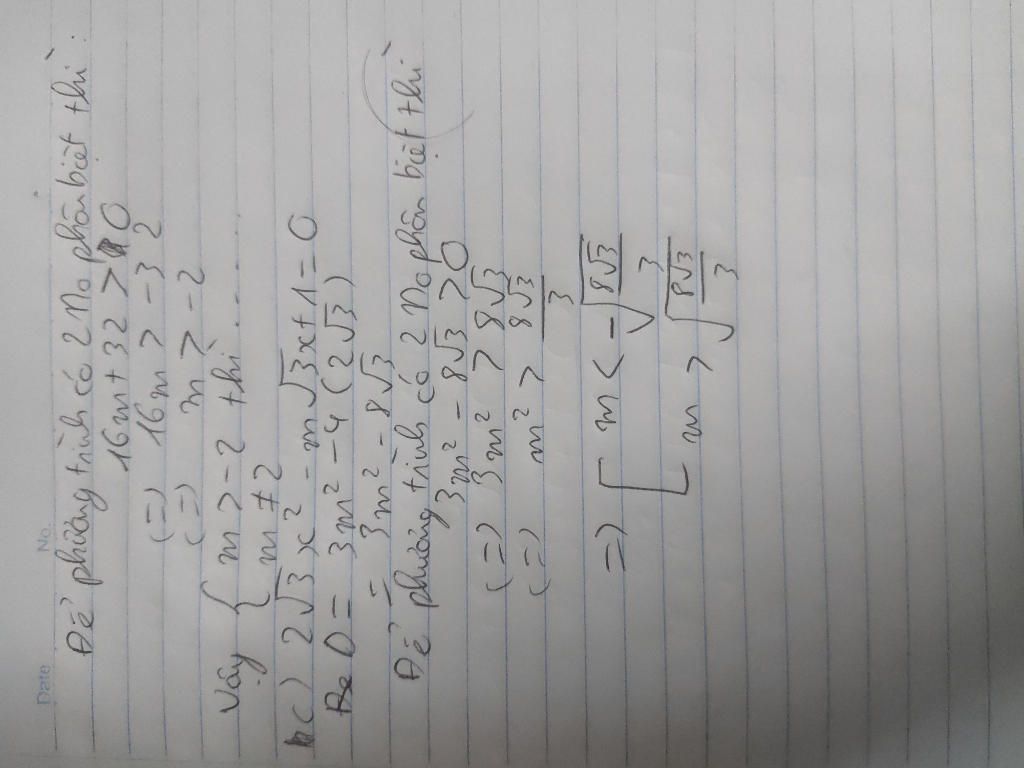 Date No.
Để phương trình có 2 No phân biệt thì:
16m + 32 > 0
(=) 16m > -32
(=) m > -2
Vậy { m > -2 thì....
m ≠ 2
c) 2√3 x² - m√3x + 1 = 0
D = 3m² - 4(2√3)
= 3m² - 8√3
Để phương trình có 2 No phân biệt thì
3m² - 8√3 > 0
(=) 3m² > 8√3
(=) m² > 8√3/3
=) [ m < -√(8√3/3)
m > √(8√3/3)